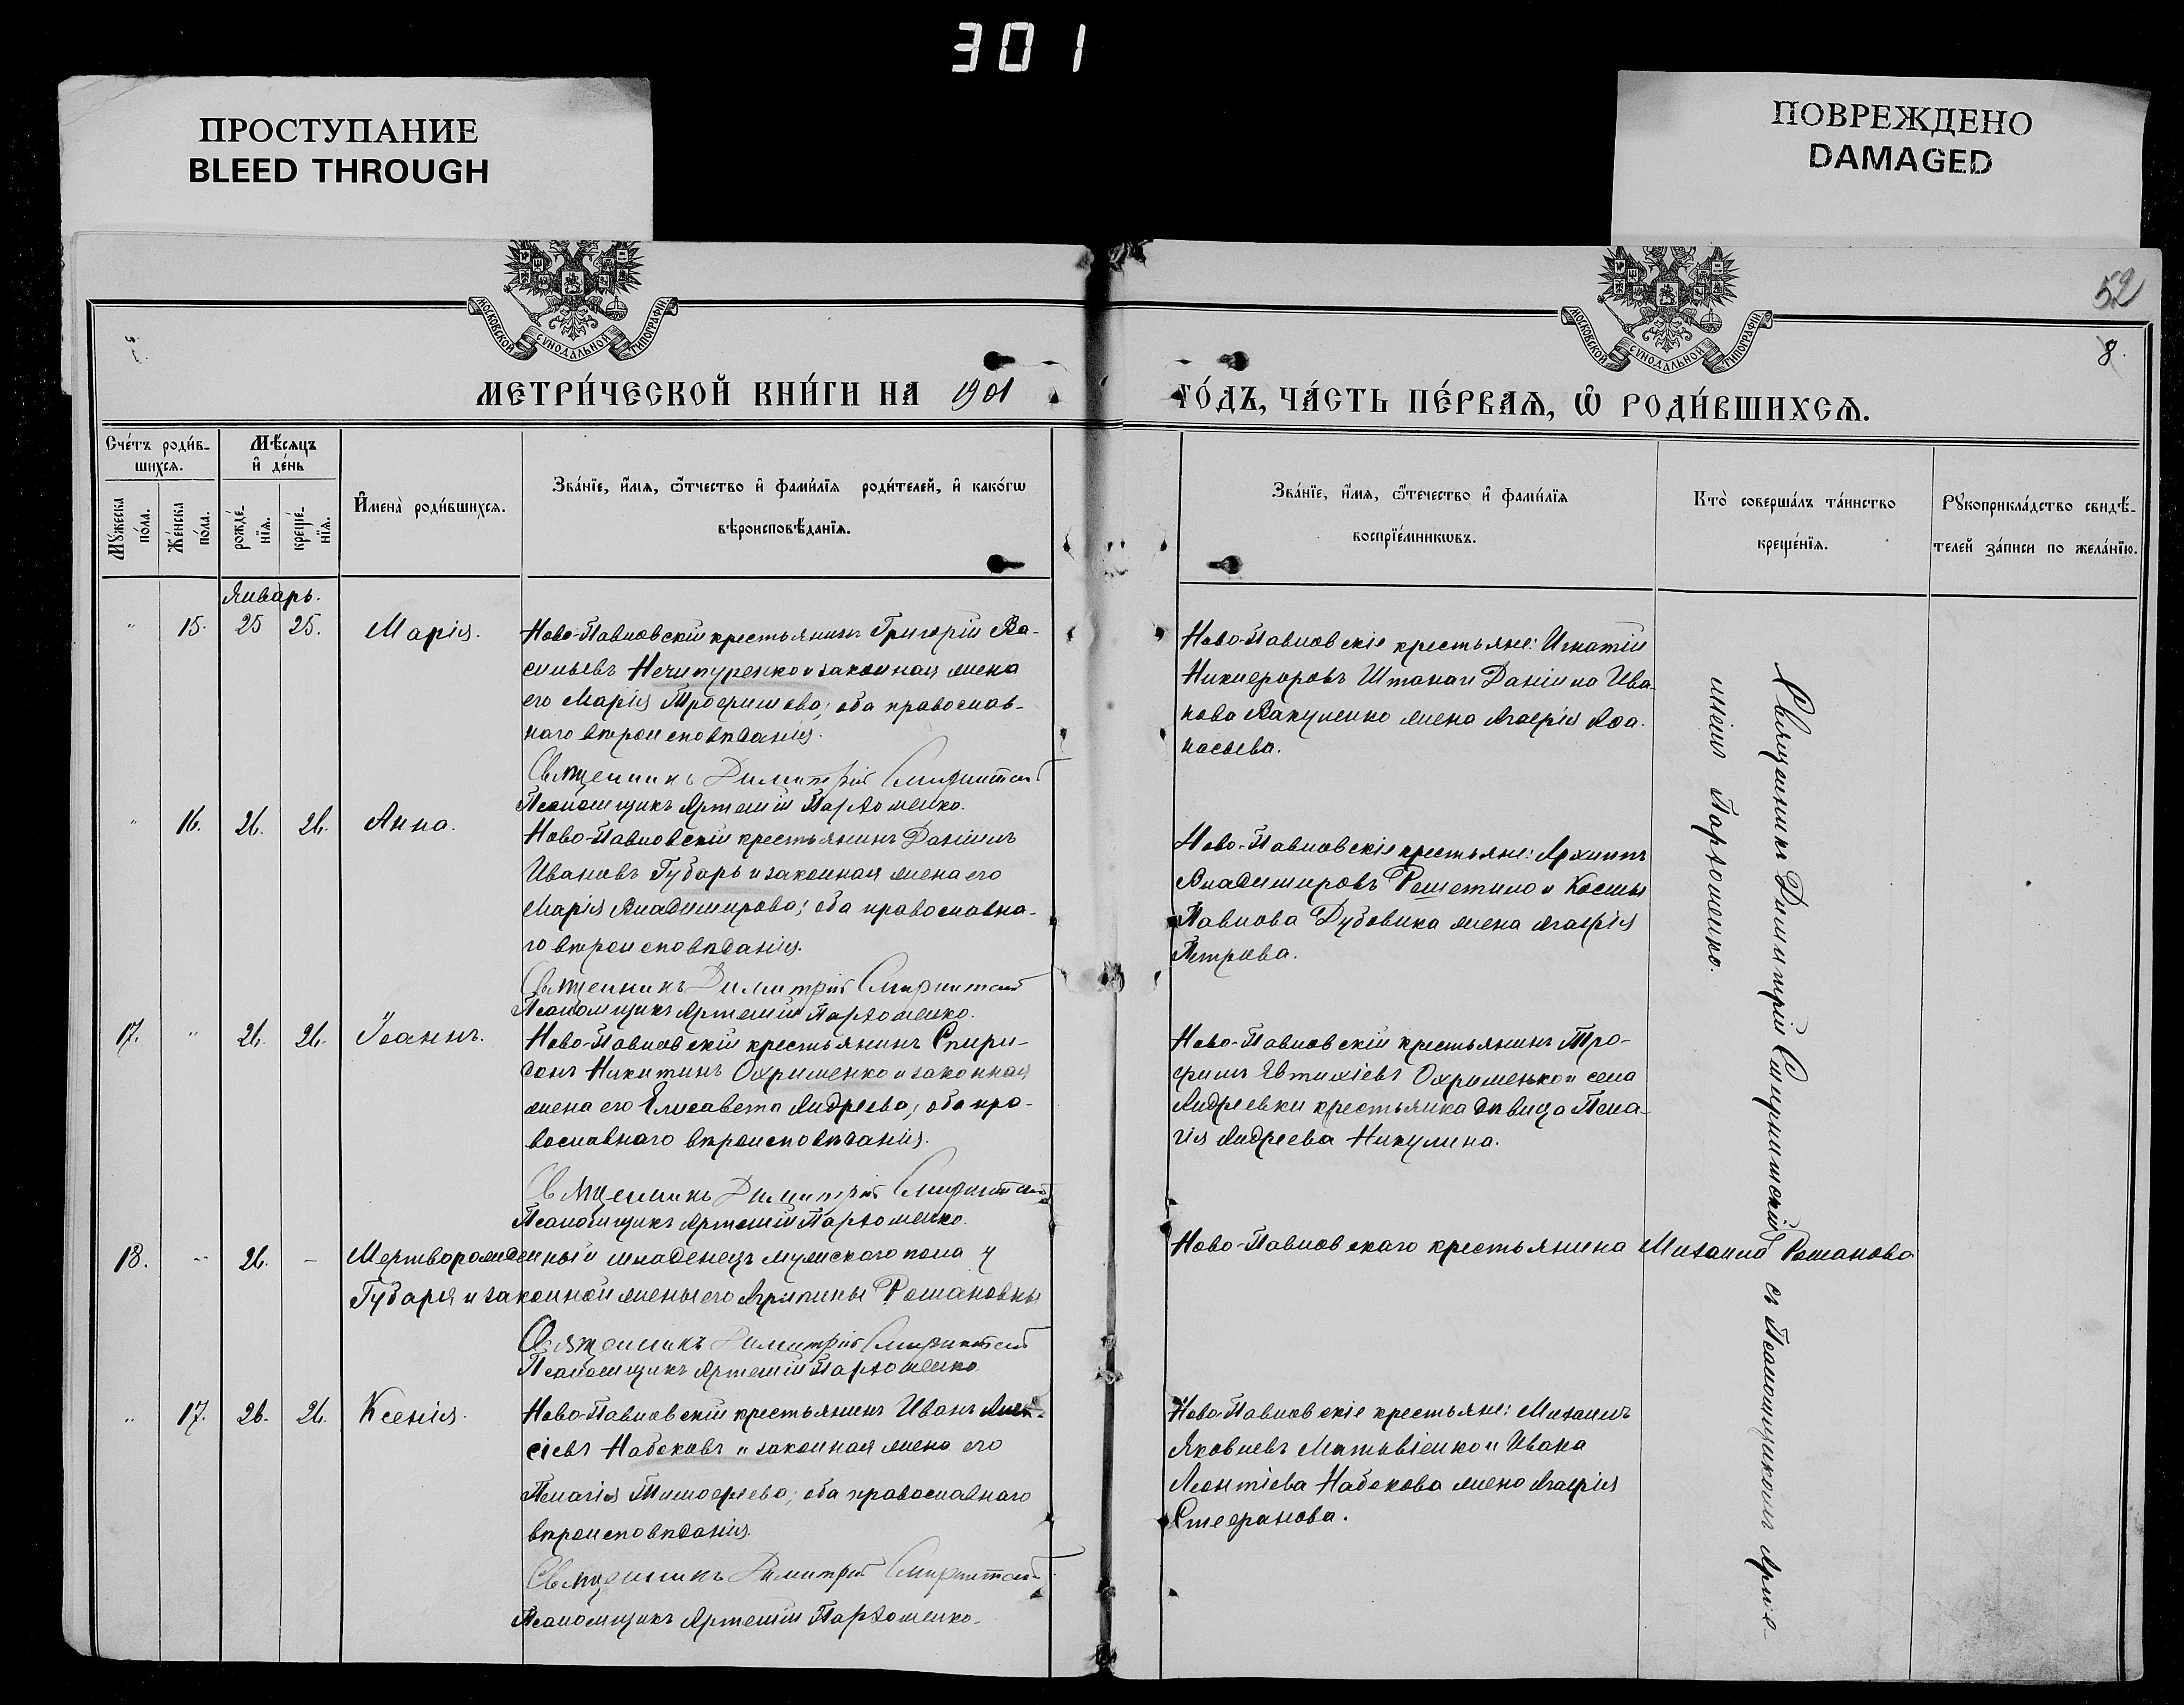 301
ПРОСТУПАНИЕ
BLEED THROUGH
ПОВРЕЖДЕНО
DAMAGED
МОСКОВСКОЙ СѴНОДАЛЬНОЙ ТИПОГРАФІИ
МОСКОВСКОЙ СѴНОДАЛЬНОЙ ТИПОГРАФІИ
52
8.
МЕТРИ́ЧЕСКОЙ КНИ́ГИ НА 1901 ГО́ДЪ, ЧА́СТЬ ПЕ́РВАѦ, Ѡ҆ РОДИ́ВШИХСѦ.
Сче́тъ роди́в-
шихсѧ.
Мѣ́сѧцъ
и҆ де́нь
Мꙋ́жеска
по́ла.
Же́нска
по́ла.
рожде́-
нїѧ.
креще́-
нїѧ.
И҆мена̀ роди́вшихсѧ.
Зва́нїе, и҆́мѧ, ѻ҆́тчество и҆ фами́лїѧ роди́телей, и҆ како́гѡ
вѣроисповѣ́данїѧ.
Зва́нїе, и҆́мѧ, ѻ҆́течество и҆ фами́лїѧ
воспрїе́мникѡвъ.
Кто̀ соверша́лъ та́инство
креще́нїѧ.
Рꙋкоприкла́дство свидѣ́-
телей за́писи по жела́нїю.
Январь.
" 15. 25 25. Марія.
Ново-Павловскій крестьянинъ Григорій Ва-
сильевъ Нечипуренко и законная жена
его Марія Трофимова; оба православ-
наго вѣроисповѣданія.
Священникъ Димитрій Смирнитскій
Псаломщикъ Артемій Пархоменко.
Ново-Павловскіе крестьяне: Игнатій
Никифоровъ Штанъ и Даніила Ива-
нова Вакуленко жена Агафія Аѳа-
насьева.
" 16. 26. 26. Анна.
Ново-Павловскій крестьянинъ Даніилъ
Ивановъ Губарь и законная жена его
Марія Владимирова; оба православна-
го вѣроисповѣданія.
Священникъ Димитрій Смирнитскій
Псаломщикъ Артемій Пархоменко.
Ново-Павловскіе крестьяне: Архипъ
Владимировъ Решетило и Косьмы
Павлова Дубовика жена Агафія
Петрова.
17. " 26. 26. Іоаннъ.
Ново-Павловскій крестьянинъ Спири-
донъ Никитинъ Охрименко и законная
жена его Елисавета Андреева; оба пра-
вославнаго вѣроисповѣданія.
Священникъ Димитрій Смирнитскій
Псаломщикъ Артемій Пархоменко.
Ново-Павловскій крестьянинъ Тро-
фимъ Евтихіевъ Охрименько и села
Андреевки крестьянка дѣвица Пела-
гія Андреева Никулина.
18. " 26. – Мертворожденный младенецъ мужскаго пола у Ново-Павловскаго крестьянина Михаила Романова
Губаря и законной жены его Агрипины Романовны
Священникъ Димитрій Смирнитскій
Псаломщикъ Артемій Пархоменко
" 17. 26. 26. Ксенія.
Ново-Павловскій крестьянинъ Иванъ Алек-
сіевъ Набоковъ и законная жена его
Пелагія Тимофеева; оба православнаго
вѣроисповѣданія.
Священникъ Димитрій Смирнитскій
Псаломщикъ Артемій Пархоменко.
Ново-Павловскіе крестьяне: Михаилъ
Яковлевъ Матвіенко и Ивана
Леонтіева Набокова жена Агафія
Стефанова.
Священникъ Димитрій Смирнитскій съ Псаломщикомъ Арте-
міемъ Пархоменко.